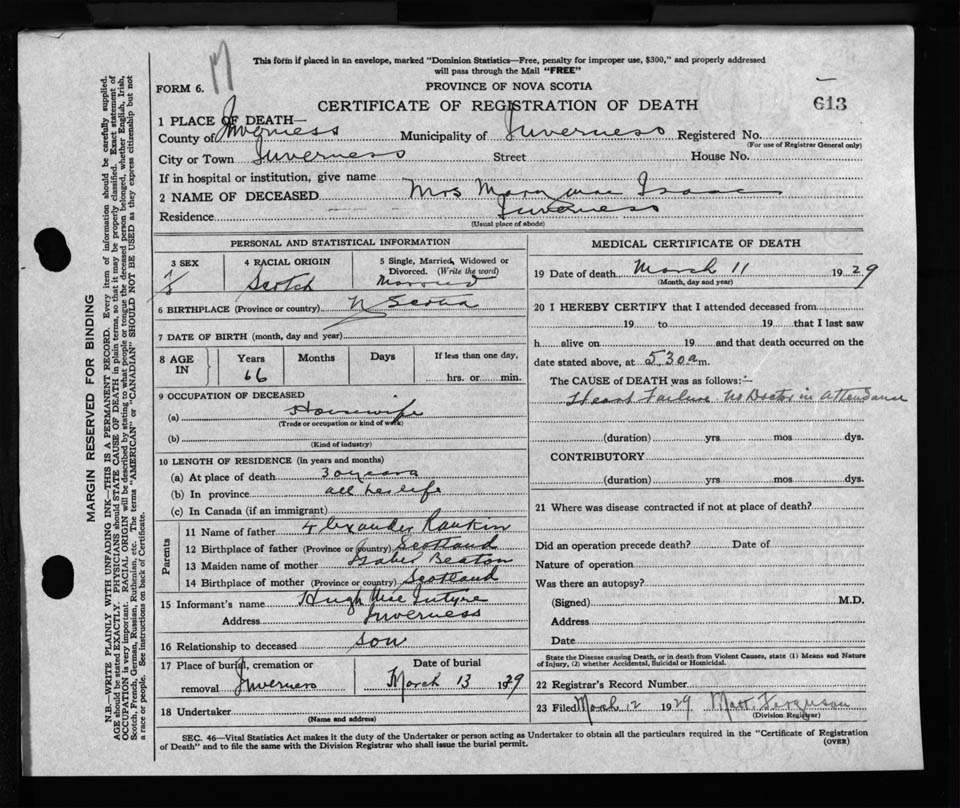 17
This form if placed in an envelope, marked "Dominion Statistics—Free, penalty for improper use, $300," and properly addressed
will pass through the Mail "FREE"
FORM 6.
PROVINCE OF NOVA SCOTIA
CERTIFICATE OF REGISTRATION OF DEATH
613
1 PLACE OF DEATH—
County of Inverness Municipality of Inverness Registered No.
(For use of Registrar General only)
City or Town Inverness Street House No.
If in hospital or institution, give name
2 NAME OF DECEASED Mrs Mary Isaac
Residence Inverness
(Usual place of abode)
PERSONAL AND STATISTICAL INFORMATION
3 SEX
4 RACIAL ORIGIN Scotch
5 Single, Married, Widowed or Divorced. (Write the word) Married
6 BIRTHPLACE (Province or country) N Scotia
7 DATE OF BIRTH (month, day and year)
8 AGE IN Years Months Days If less than one day,
66 hrs. or min.
9 OCCUPATION OF DECEASED
(a) Housewife
(Trade or occupation or kind of work)
(b)
(Kind of industry)
10 LENGTH OF RESIDENCE (in years and months)
(a) At place of death 30 years
(b) In province all her life
(c) In Canada (if an immigrant)
Parents
11 Name of father Alexander Rankin
12 Birthplace of father (Province or country) Scotland
13 Maiden name of mother Isabel Beaton
14 Birthplace of mother (Province or country) Scotland
15 Informant's name Hugh Mc Intyre
Address Inverness
16 Relationship to deceased son
17 Place of burial, cremation or Date of burial
removal Inverness March 13 1929
18 Undertaker
(Name and address)
MEDICAL CERTIFICATE OF DEATH
19 Date of death March 11 1929
(Month, day and year)
20 I HEREBY CERTIFY that I attended deceased from
19 to 19 that I last saw
h alive on 19 and that death occurred on the
date stated above, at 5.30 a m.
The CAUSE of DEATH was as follows:—
Heart Failure no Doctor in attendance
(duration) yrs mos dys.
CONTRIBUTORY
(duration) yrs mos dys.
21 Where was disease contracted if not at place of death?
Did an operation precede death? Date of
Nature of operation
Was there an autopsy?
(Signed) M.D.
Address
Date
State the Disease causing Death, or in death from Violent Causes, state (1) Means and Nature
of Injury, (2) whether Accidental, Suicidal or Homicidal.
22 Registrar's Record Number
23 Filed March 12 1929 Matt Ferguson
(Division Registrar)
SEC. 46—Vital Statistics Act makes it the duty of the Undertaker or person acting as Undertaker to obtain all the particulars required in the "Certificate of Registration
of Death" and to file the same with the Division Registrar who shall issue the burial permit.
(OVER)
MARGIN RESERVED FOR BINDING
N.B.—WRITE PLAINLY WITH UNFADING INK—THIS IS A PERMANENT RECORD. Every item of information should be carefully supplied.
AGE should be stated EXACTLY. PHYSICIANS should STATE CAUSE OF DEATH in plain terms, so that it may be properly classified. Exact statement of
OCCUPATION is very important. RACIAL ORIGIN will be described by stating to what people or tongue the deceased person belonged, whether English, Irish,
Scotch, French, German, Russian, Ruthenian, etc. The terms "AMERICAN" or "CANADIAN" SHOULD NOT BE USED as they express citizenship but not
a race or people. See instructions on back of Certificate.